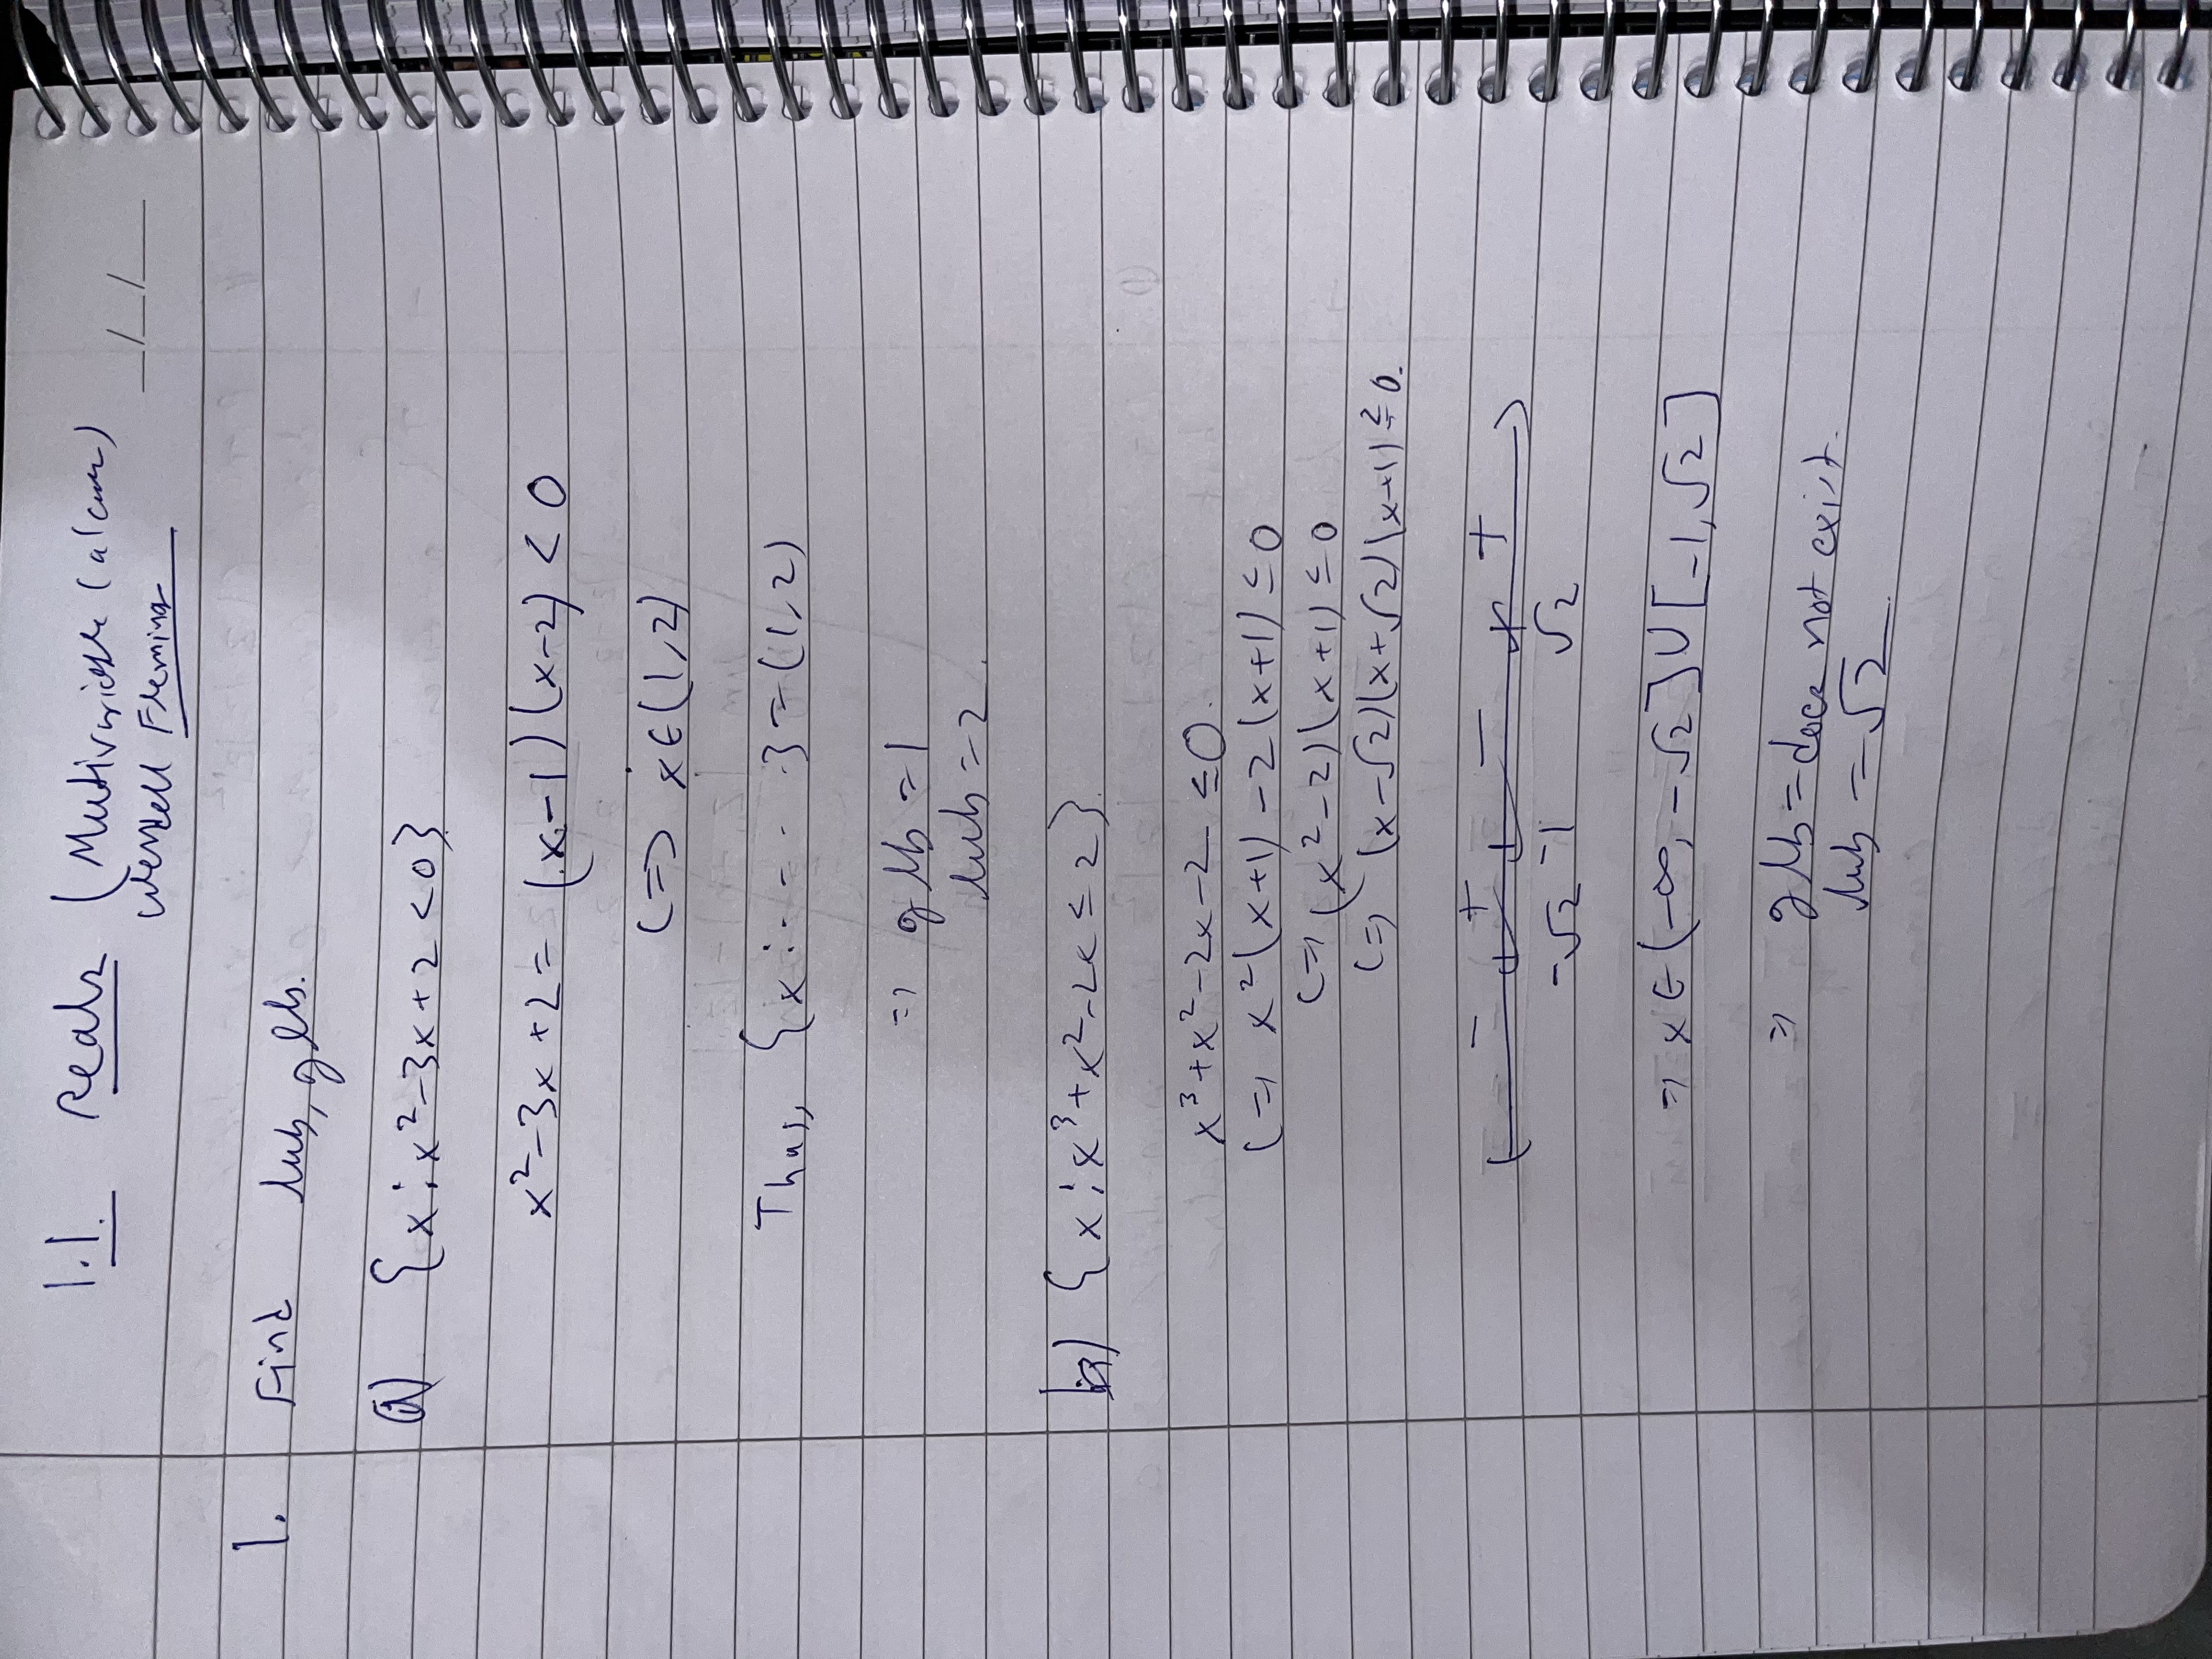 1.1. Reals (Multivariable Calculus)
Wendell Fleming
__/__/__
1. Find lub, glb.
a) {x : x²-3x+2 <0}
x²-3x+2 = (x-1)(x-2) < 0
(=> x∈(1,2)
Thus, {x : - - - - } = (1,2)
=> glb = 1
lub = 2.
b) {x : x³+x²-2x ≤ 2}.
x³+x²-2x-2 ≤0.
(=> x²(x+1) -2(x+1) ≤ 0
(=> (x²-2)(x+1) ≤ 0
(=> (x-√2)(x+√2)(x+1) ≤ 0.
- + - +
-√2 -1 √2
=> x∈(-∞, -√2]∪[-1, √2]
=> glb = does not exist.
lub = √2.